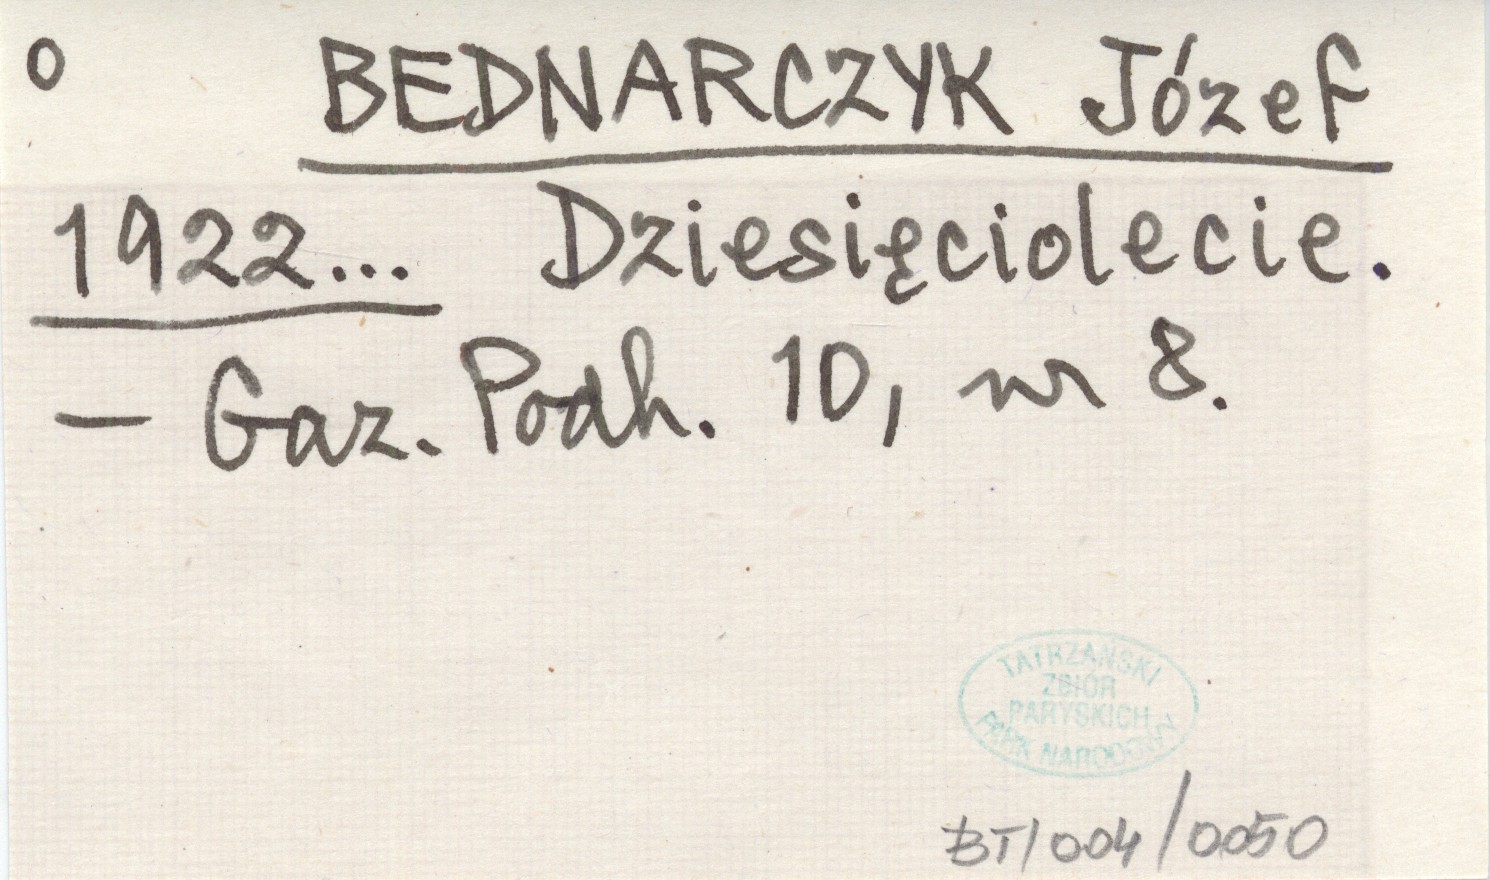 o BEDNARCZYK Józef
1922... Dziesięciolecie.
– Gaz. Podh. 10, nr 8.
TATRZAŃSKI
ZBIÓR
PARYSKICH
PARK NARODOWY
BT/004/0050